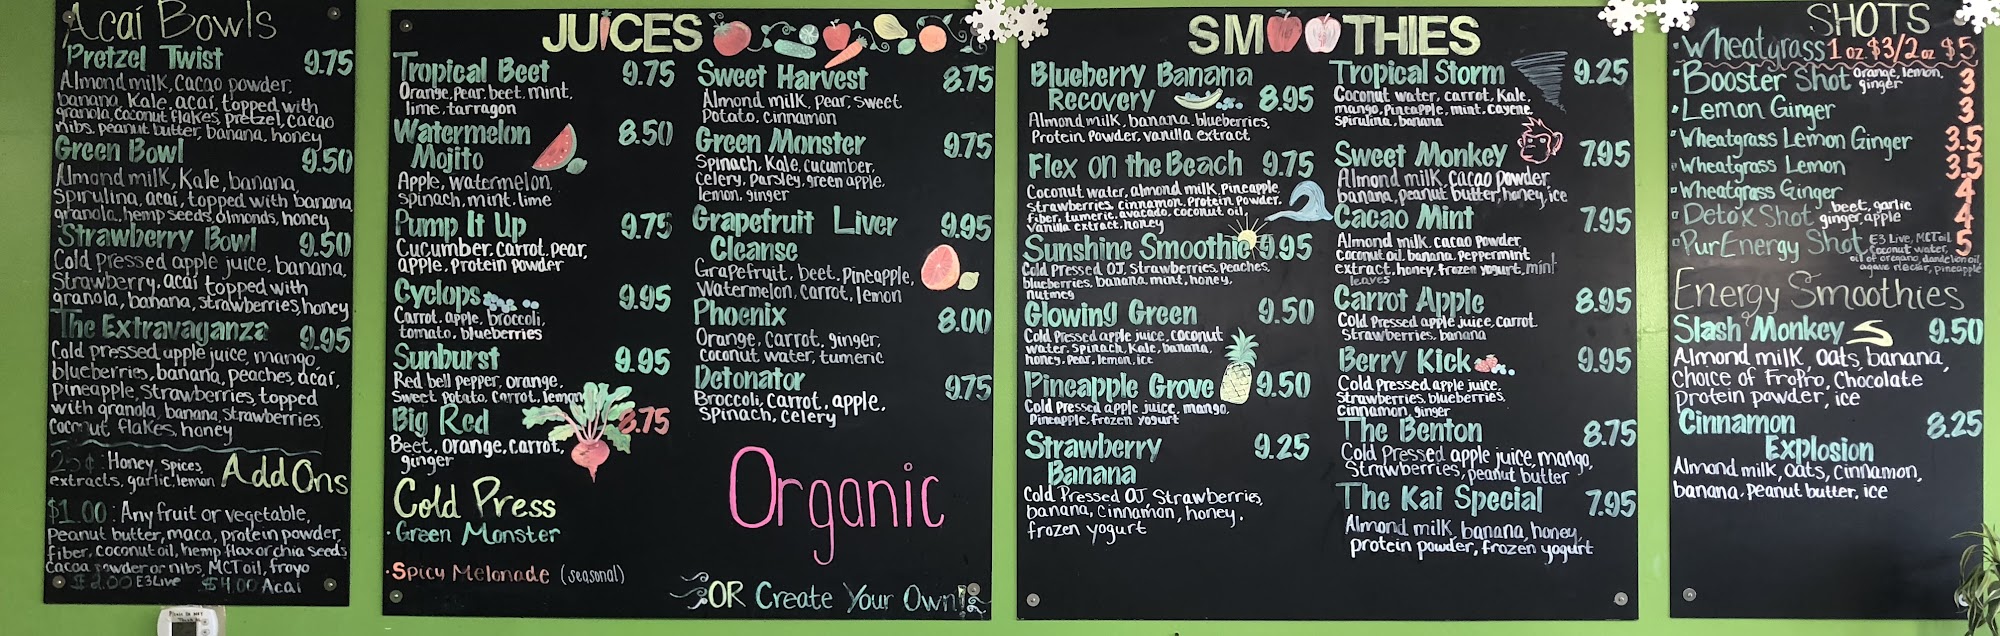 Acaí Bowls
Pretzel Twist 9.75
Almond milk, cacao powder,
banana, Kale, acaí, topped with
granola, coconut flakes, pretzel, cacao
nibs, peanut butter, banana, honey
Green Bowl 9.50
Almond milk, Kale, banana,
Spirulina, acaí, topped with banana
granola, hemp seeds, almonds, honey
Strawberry Bowl 9.50
Cold pressed apple juice, banana,
Strawberry, acaí topped with
granola, banana, strawberries, honey
The Extravaganza 9.95
Cold pressed apple juice, mango,
blueberries, banana, peaches, acaí,
Pineapple, Strawberries, topped
with granola, banana, strawberries,
coconut flakes, honey
25¢: Honey, Spices, Add Ons
extracts, garlic, lemon
$1.00: Any fruit or vegetable,
Peanut butter, maca, protein powder,
fiber, coconut oil, hemp flax or chia seeds
cacao powder or nibs, MCT oil, froyo
$2.00 E3Live $4.00 Acaí
JUICES
Tropical Beet 9.75
Orange, pear, beet, mint,
lime, tarragon
Watermelon 8.50
Mojito
Apple, watermelon,
Spinach, mint, lime
Pump It Up 9.75
Cucumber, carrot, pear,
apple, Protein powder
Cyclops 9.95
Carrot, apple, broccoli,
tomato, blueberries
Sunburst 9.95
Red bell pepper, orange,
Sweet Potato, Carrot, lemon
Big Red 8.75
Beet, orange, carrot,
ginger
Cold Press
· Green Monster
· Spicy Melonade (seasonal)
Sweet Harvest 8.75
Almond milk, Pear, sweet
Potato, cinnamon
Green Monster 9.75
Spinach, Kale, cucumber,
Celery, parsley, green apple,
lemon, ginger
Grapefruit Liver 9.95
Cleanse
Grapefruit, beet, Pineapple,
Watermelon, carrot, lemon
Phoenix 8.00
Orange, carrot, ginger,
Coconut water, tumeric
Detonator 9.75
Broccoli, carrot, apple,
Spinach, celery
Organic
OR Create Your Own!
SMOOTHIES
Blueberry Banana
Recovery 8.95
Almond milk, banana, blueberries,
Protein Powder, vanilla extract
Flex on the Beach 9.75
Coconut water, almond milk, Pineapple
strawberries, cinnamon, Protein Powder,
fiber, tumeric, avocado, coconut oil,
vanilla extract, honey
Sunshine Smoothie 9.95
Cold Pressed OJ, strawberries, Peaches,
blueberries, banana, mint, honey,
nutmeg
Glowing Green 9.50
Cold Pressed apple juice, coconut
water, Spinach, Kale, banana,
honey, pear, lemon, ice
Pineapple Grove 9.50
Cold Pressed apple juice, mango,
Pineapple, frozen yogurt
Strawberry 9.25
Banana
Cold Pressed OJ, Strawberries,
banana, Cinnamon, honey,
frozen yogurt
Tropical Storm 9.25
Coconut water, carrot, Kale,
mango, Pineapple, mint, Cayene,
spirulina, banana
Sweet Monkey 7.95
Almond milk, cacao powder,
banana, peanut butter, honey, ice
Cacao Mint 7.95
Almond milk, cacao powder
Coconut oil, banana, Peppermint
extract, honey, frozen yogurt, mint
leaves
Carrot Apple 8.95
Cold Pressed apple juice, carrot
Strawberries, banana
Berry Kick 9.95
Cold Pressed apple juice,
Strawberries, blueberries,
cinnamon, ginger
The Benton 8.75
Cold Pressed apple juice, mango,
Strawberries, peanut butter
The Kai Special 7.95
Almond milk, banana, honey,
protein powder, frozen yogurt
SHOTS
Wheatgrass 1 oz $3/2 oz $5
Booster Shot orange, lemon, ginger 3
Lemon Ginger 3
Wheatgrass Lemon Ginger 3.5
Wheatgrass Lemon 3.5
Wheatgrass Ginger 4
Detox Shot beet, garlic ginger, apple 4
PurEnergy Shot E3 Live, MCT oil 5
coconut water,
oil of oregano, dandelion oil,
agave nectar, pineapple
Energy Smoothies
Slash Monkey 9.50
Almond milk, oats, banana,
Choice of FroPro, Chocolate
Protein powder, ice
Cinnamon 8.25
Explosion
Almond milk, oats, cinnamon,
banana, Peanut butter, ice